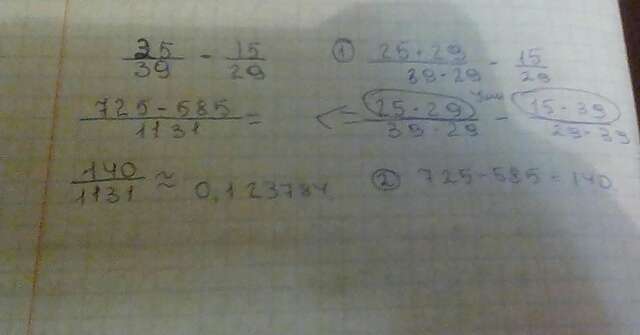 25/39 - 15/29
① 25·29/39·29 - 15/29
725-585/1131 =
← = 25·29/39·29 - 15·39/29·39
140/1131 ≈ 0,123784
② 725-585=140